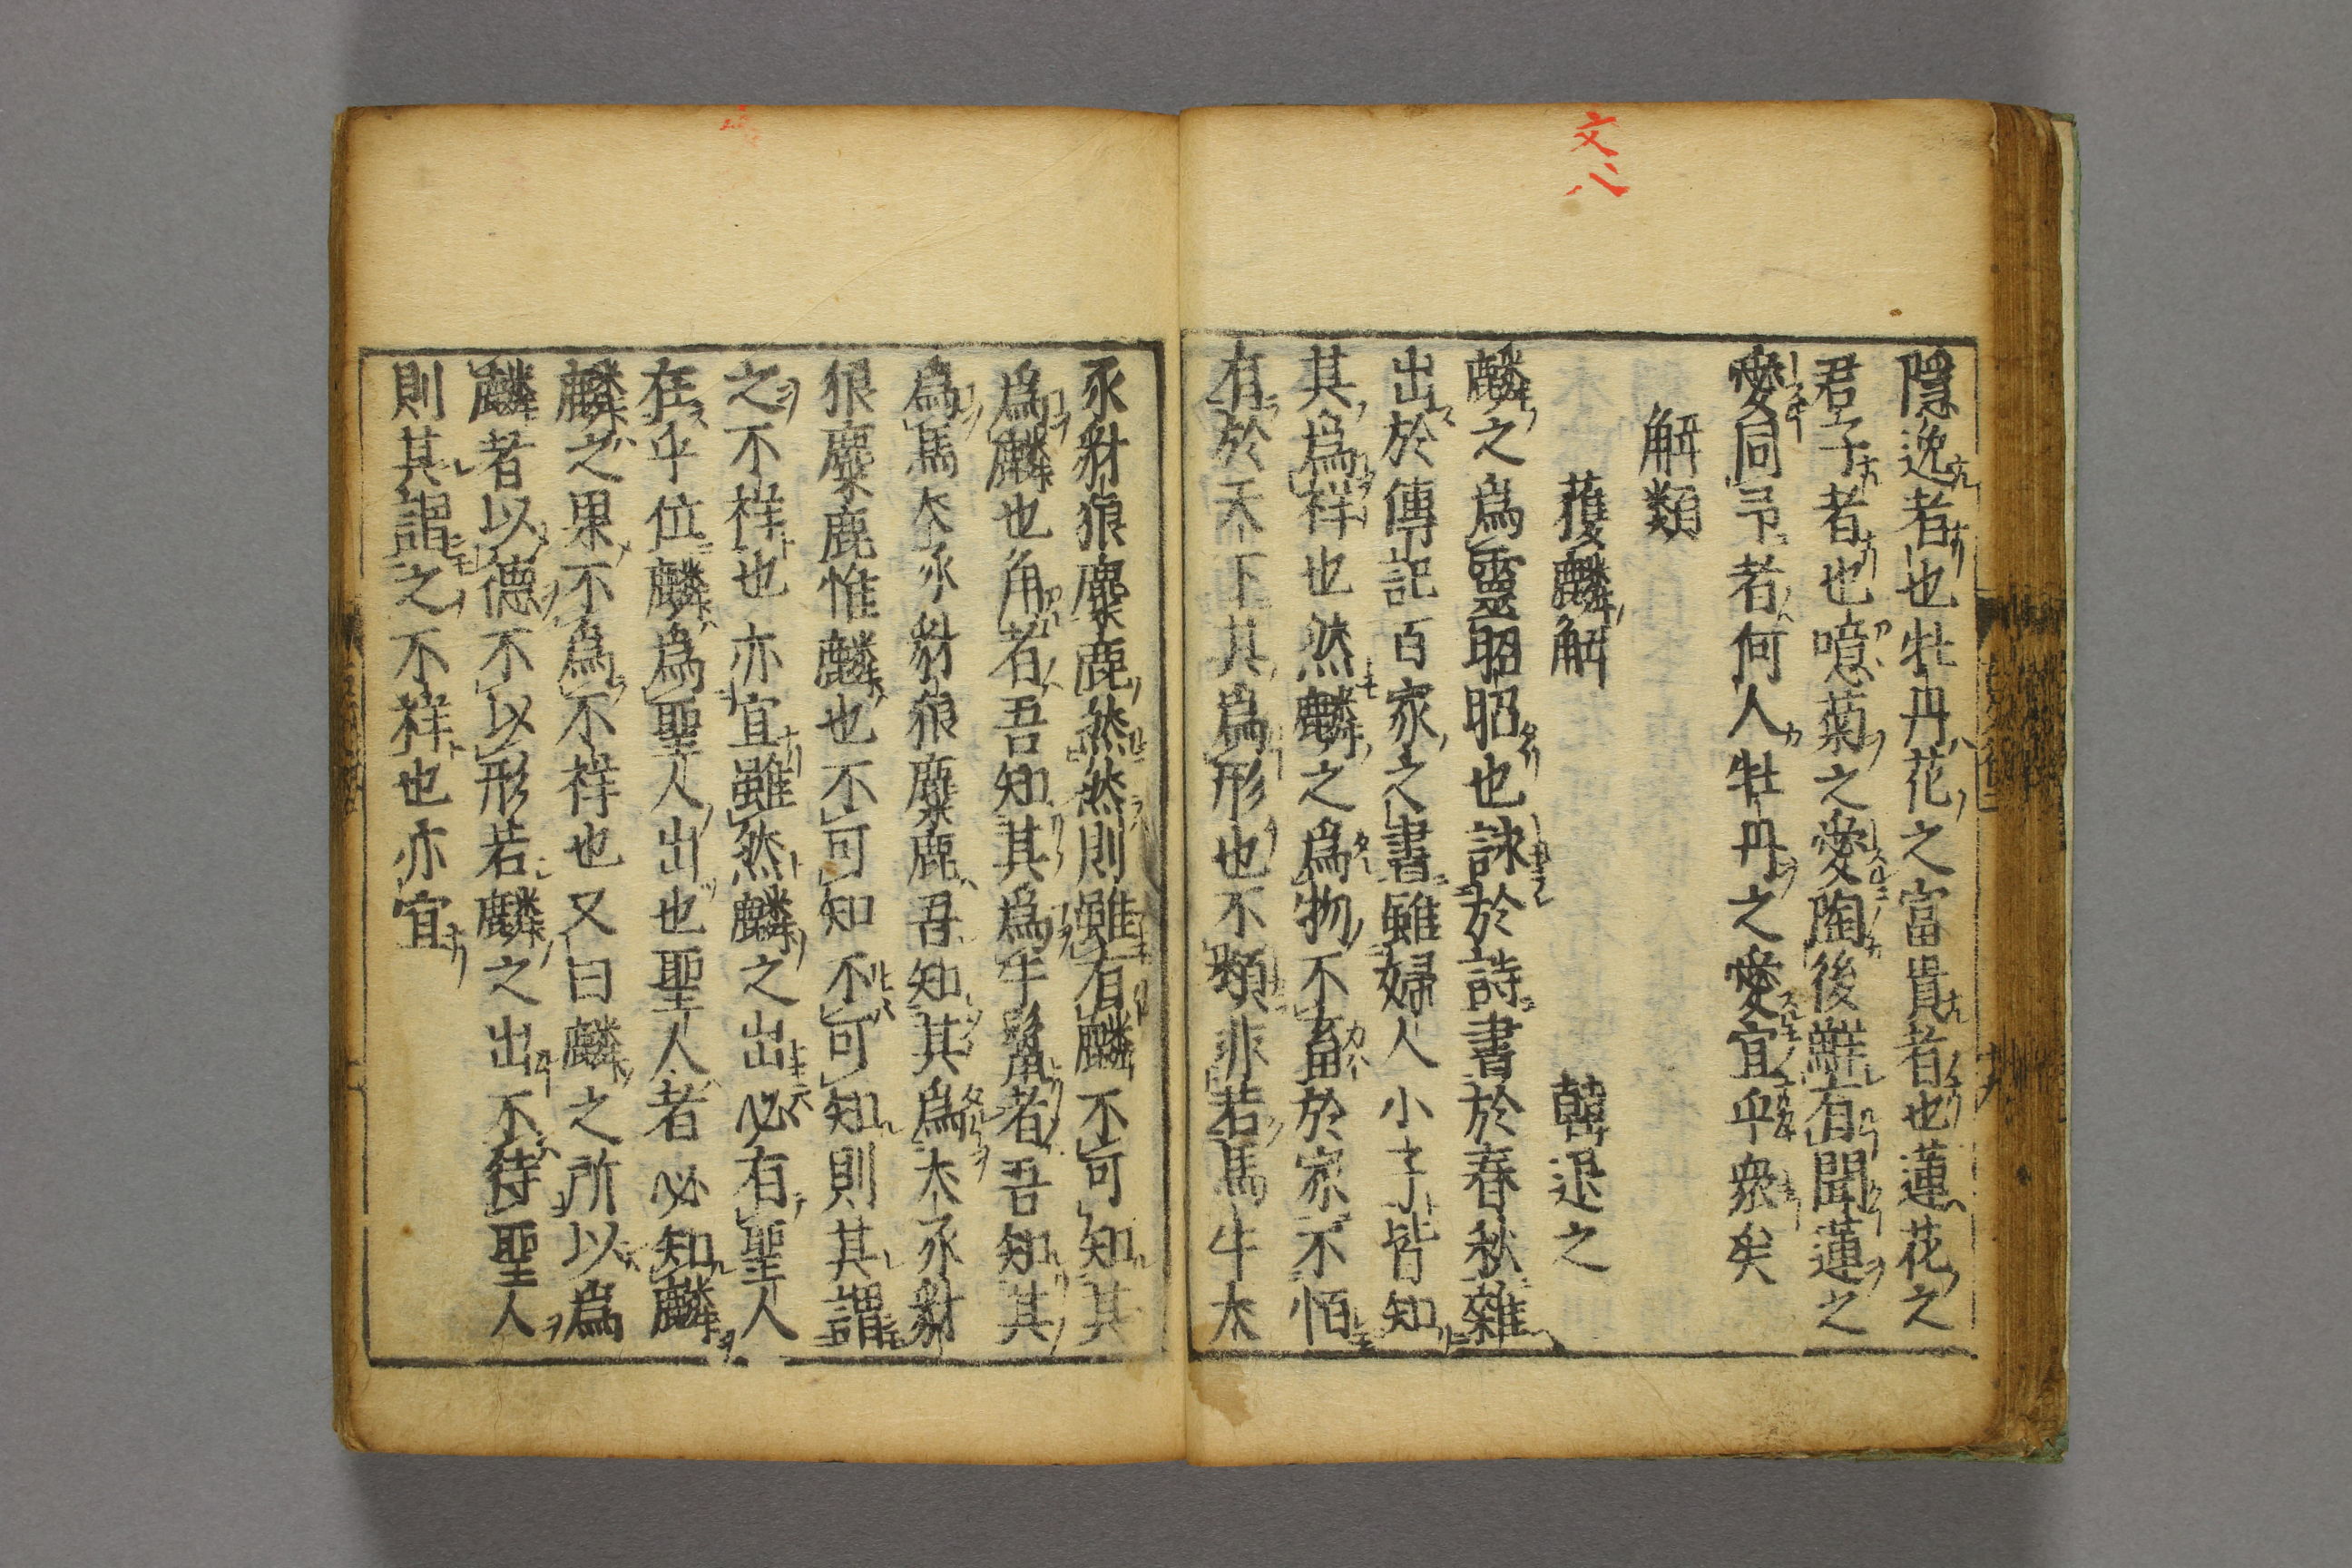 文八
隠逸者也牡丹花之富貴者也蓮花之
君子者也噫菊之愛陶後鮮有聞蓮之
愛同予者何人牡丹之愛宜乎衆矣
解類
獲麟解 韓退之
麟之為靈昭昭也詠於詩書於春秋雜
出於傳記百家之書雖婦人小子皆知
其為祥也然麟之為物不畜於家不恒
有於天下其為形也不類非若馬牛犬
豕豺狼麋鹿然然則雖有麟不可知其
為麟也角者吾知其為牛鬣者吾知其
為馬犬豕豺狼麋鹿吾知其為犬豕豺
狼麋鹿惟麟也不可知不可知則其謂
之不祥也亦宜雖然麟之出必有聖人
在乎位麟為聖人出也聖人者必知麟
麟之果不為不祥也又曰麟之所以為
麟者以德不以形若麟之出不待聖人
則其謂之不祥也亦宜